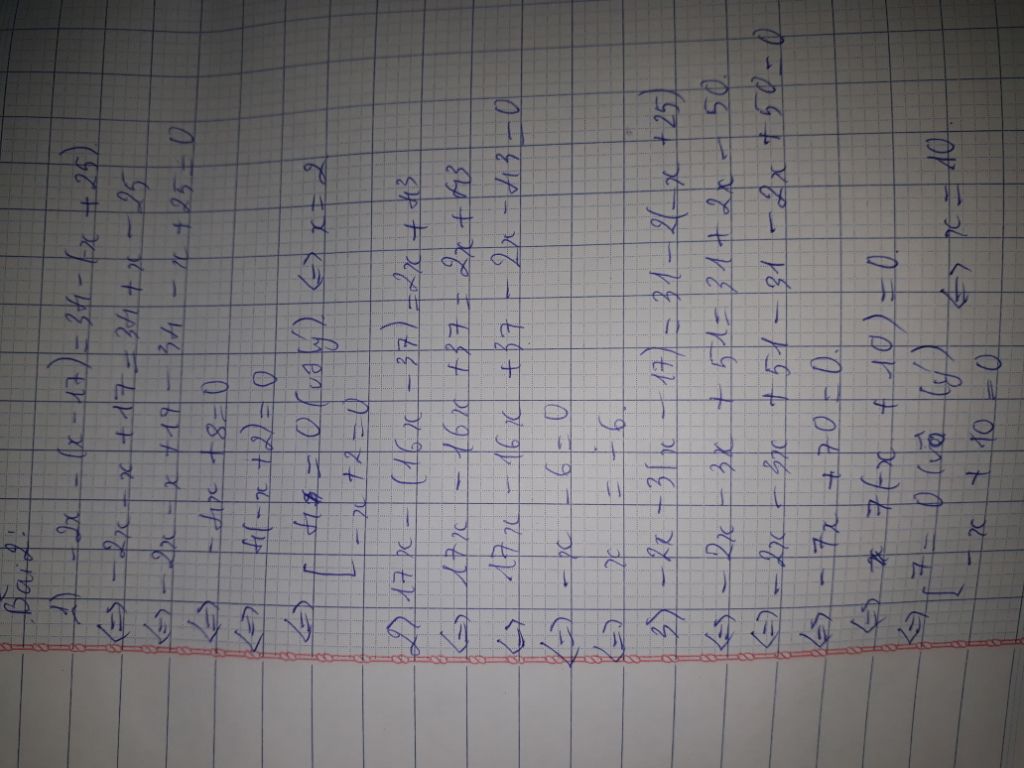 Bài 2:
1) -2x - (x - 17) = 34 - (-x + 25)
<=> -2x - x + 17 = 34 + x - 25
<=> -2x - x + 17 - 34 - x + 25 = 0
<=> -4x + 8 = 0
<=> 4(-x + 2) = 0
<=> [ 4 = 0 (vô lý) <=> x = 2
-x + 2 = 0
2) 17x - (16x - 37) = 2x + 43
<=> 17x - 16x + 37 = 2x + 43
<=> 17x - 16x + 37 - 2x - 43 = 0
<=> -x - 6 = 0
<=> x = -6.
3) -2x - 3(x - 17) = 31 - 2(-x + 25)
<=> -2x - 3x + 51 = 31 + 2x - 50
<=> -2x - 3x + 51 - 31 - 2x + 50 = 0
<=> -7x + 70 = 0.
<=> 7(-x + 10) = 0.
<=> [ 7 = 0 (vô lý) <=> x = 10.
-x + 10 = 0